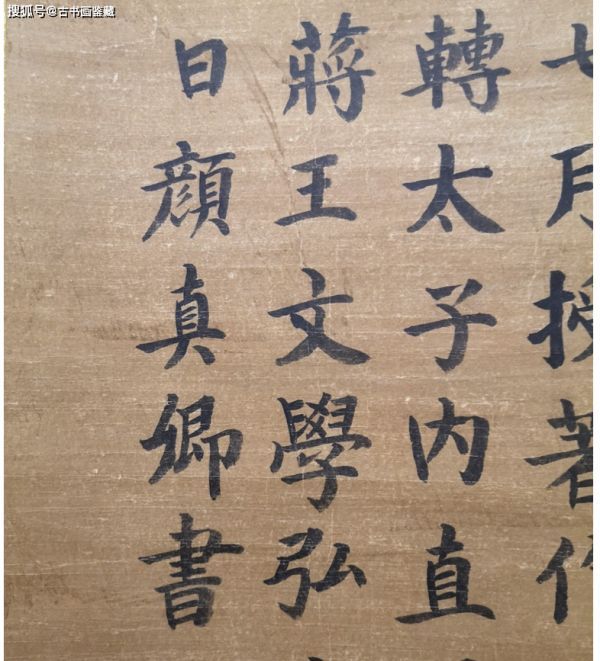 搜狐号@古书画鉴藏
七月授著作
轉太子内直
蔣王文學弘
日顔真卿書